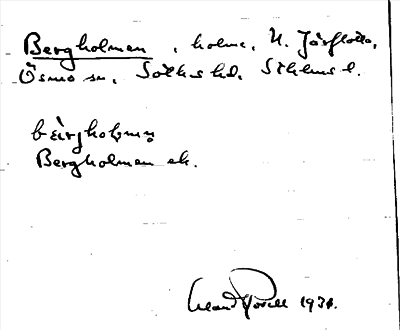 Bergholmen, holme, N. Järflotta,
Ösmo sn, Sotholms hd, Sthlms l.
bærjhoḷmən
Bergholmen ek.
1934.